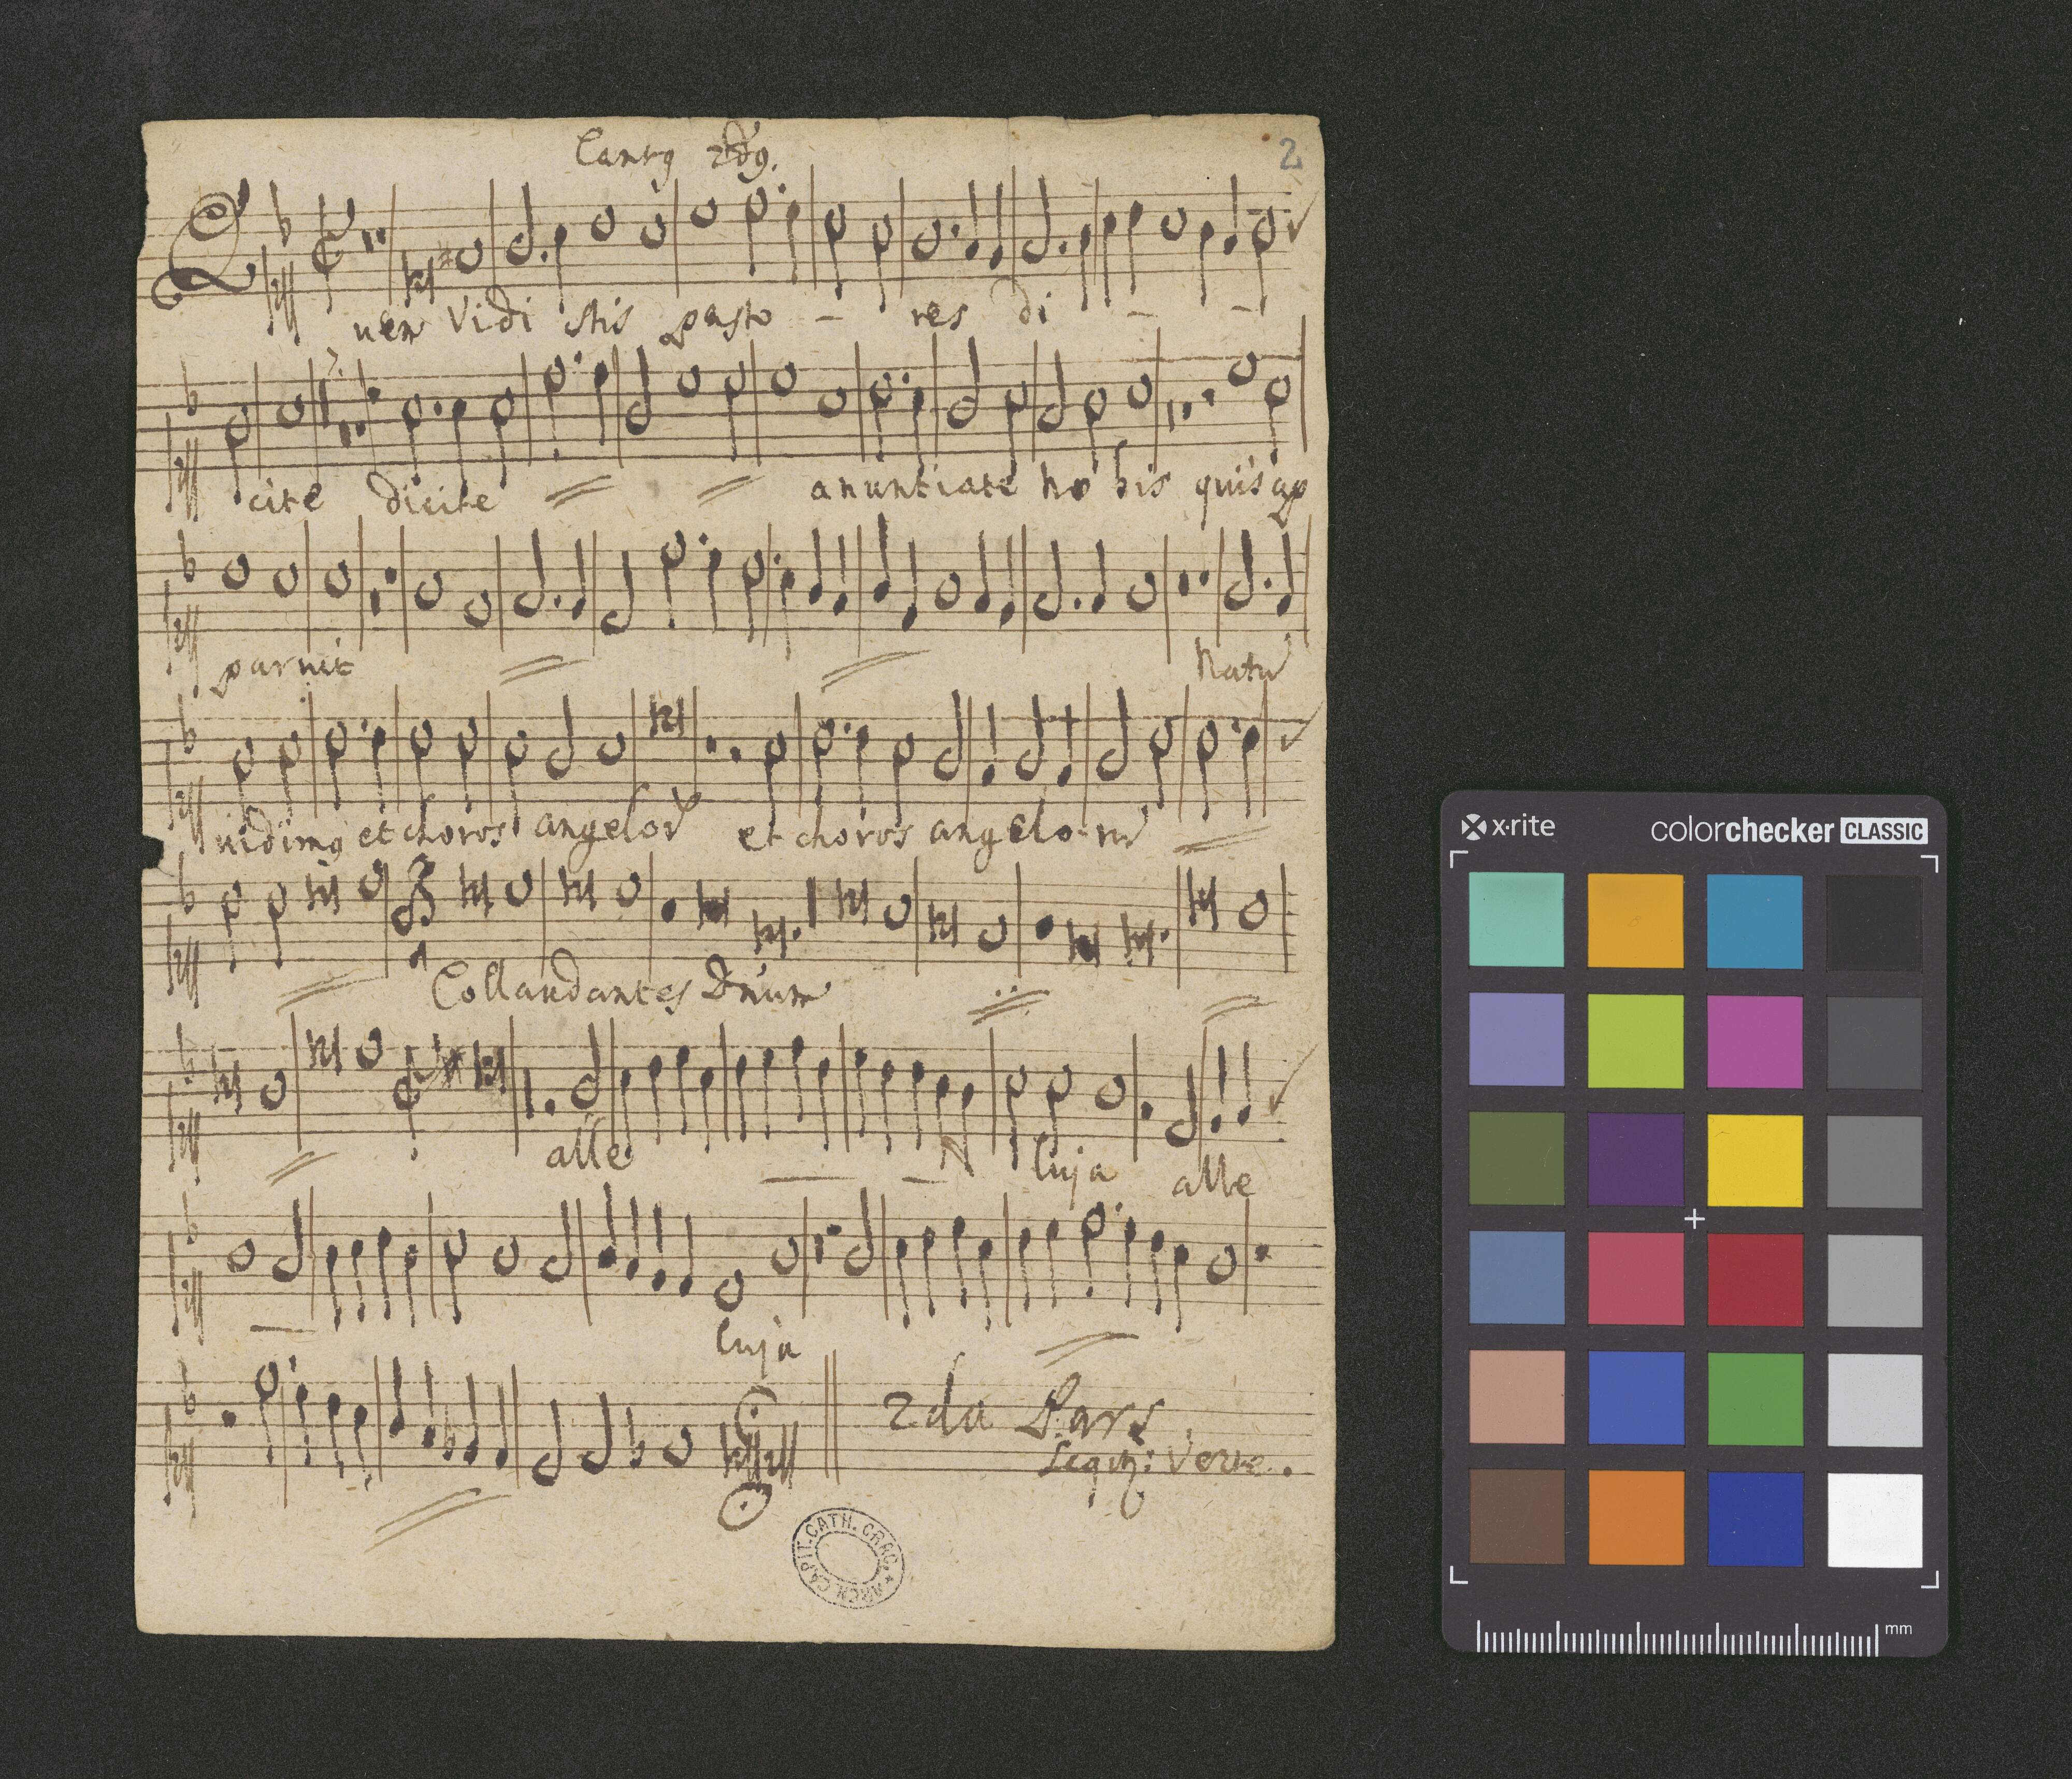 Cantg 2dg.
2
Quem Vidi stis pasto - res di - -
cite dicite anuntiate no bis quis ap
paruit Natū
uidimg et choros angelorū et choros angelo-rū
Collaudantes Dnum
alle - - luja alle
- luja
2da Pars
Seqtg: Verte.
ARCH. CAPIT. CATH. CRAC.
x-rite
colorchecker CLASSIC
mm